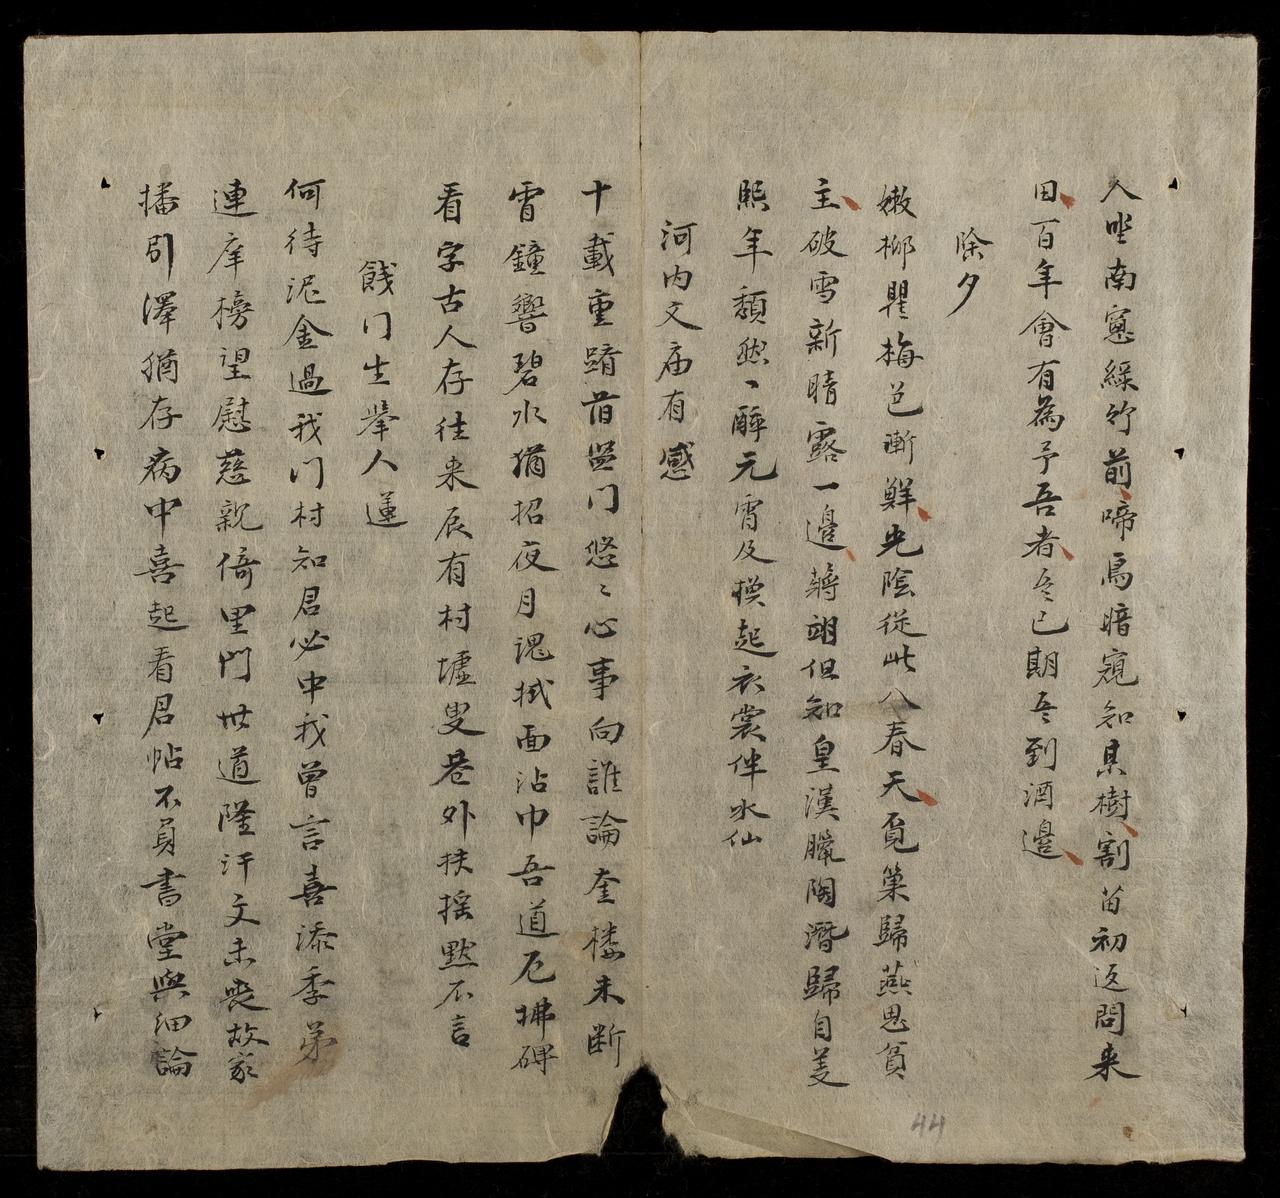 人坐南窓綠竹前啼鳥暗窺知某樹割苗初返問来
田百年會有為予吾者吾已期吾到酒邊
除夕
嫩柳瞿梅色漸鮮光陰從此入春天覔巢歸燕思貧
主破雪新晴露一邊蔣翊但知皇漢臘陶潛歸自羲
熙年頹然一醉元宵及摸起衣裳伴水仙
河内文庙有感
十載重踏首善門悠〻心事向誰論奎楼未断
霄鐘響碧水猶招夜月魂拭面沾巾吾道厄拂碑
看字古人存往来辰有村墟叟巷外扶搖默不言
餞门生舉人蓮
何待泥金過我门村知君必中我曾言喜添季弟
連庠榜望慰慈親倚里門世道隆汙文未喪故家
播引澤猶存病中喜起看君帖不負書堂與細論
44